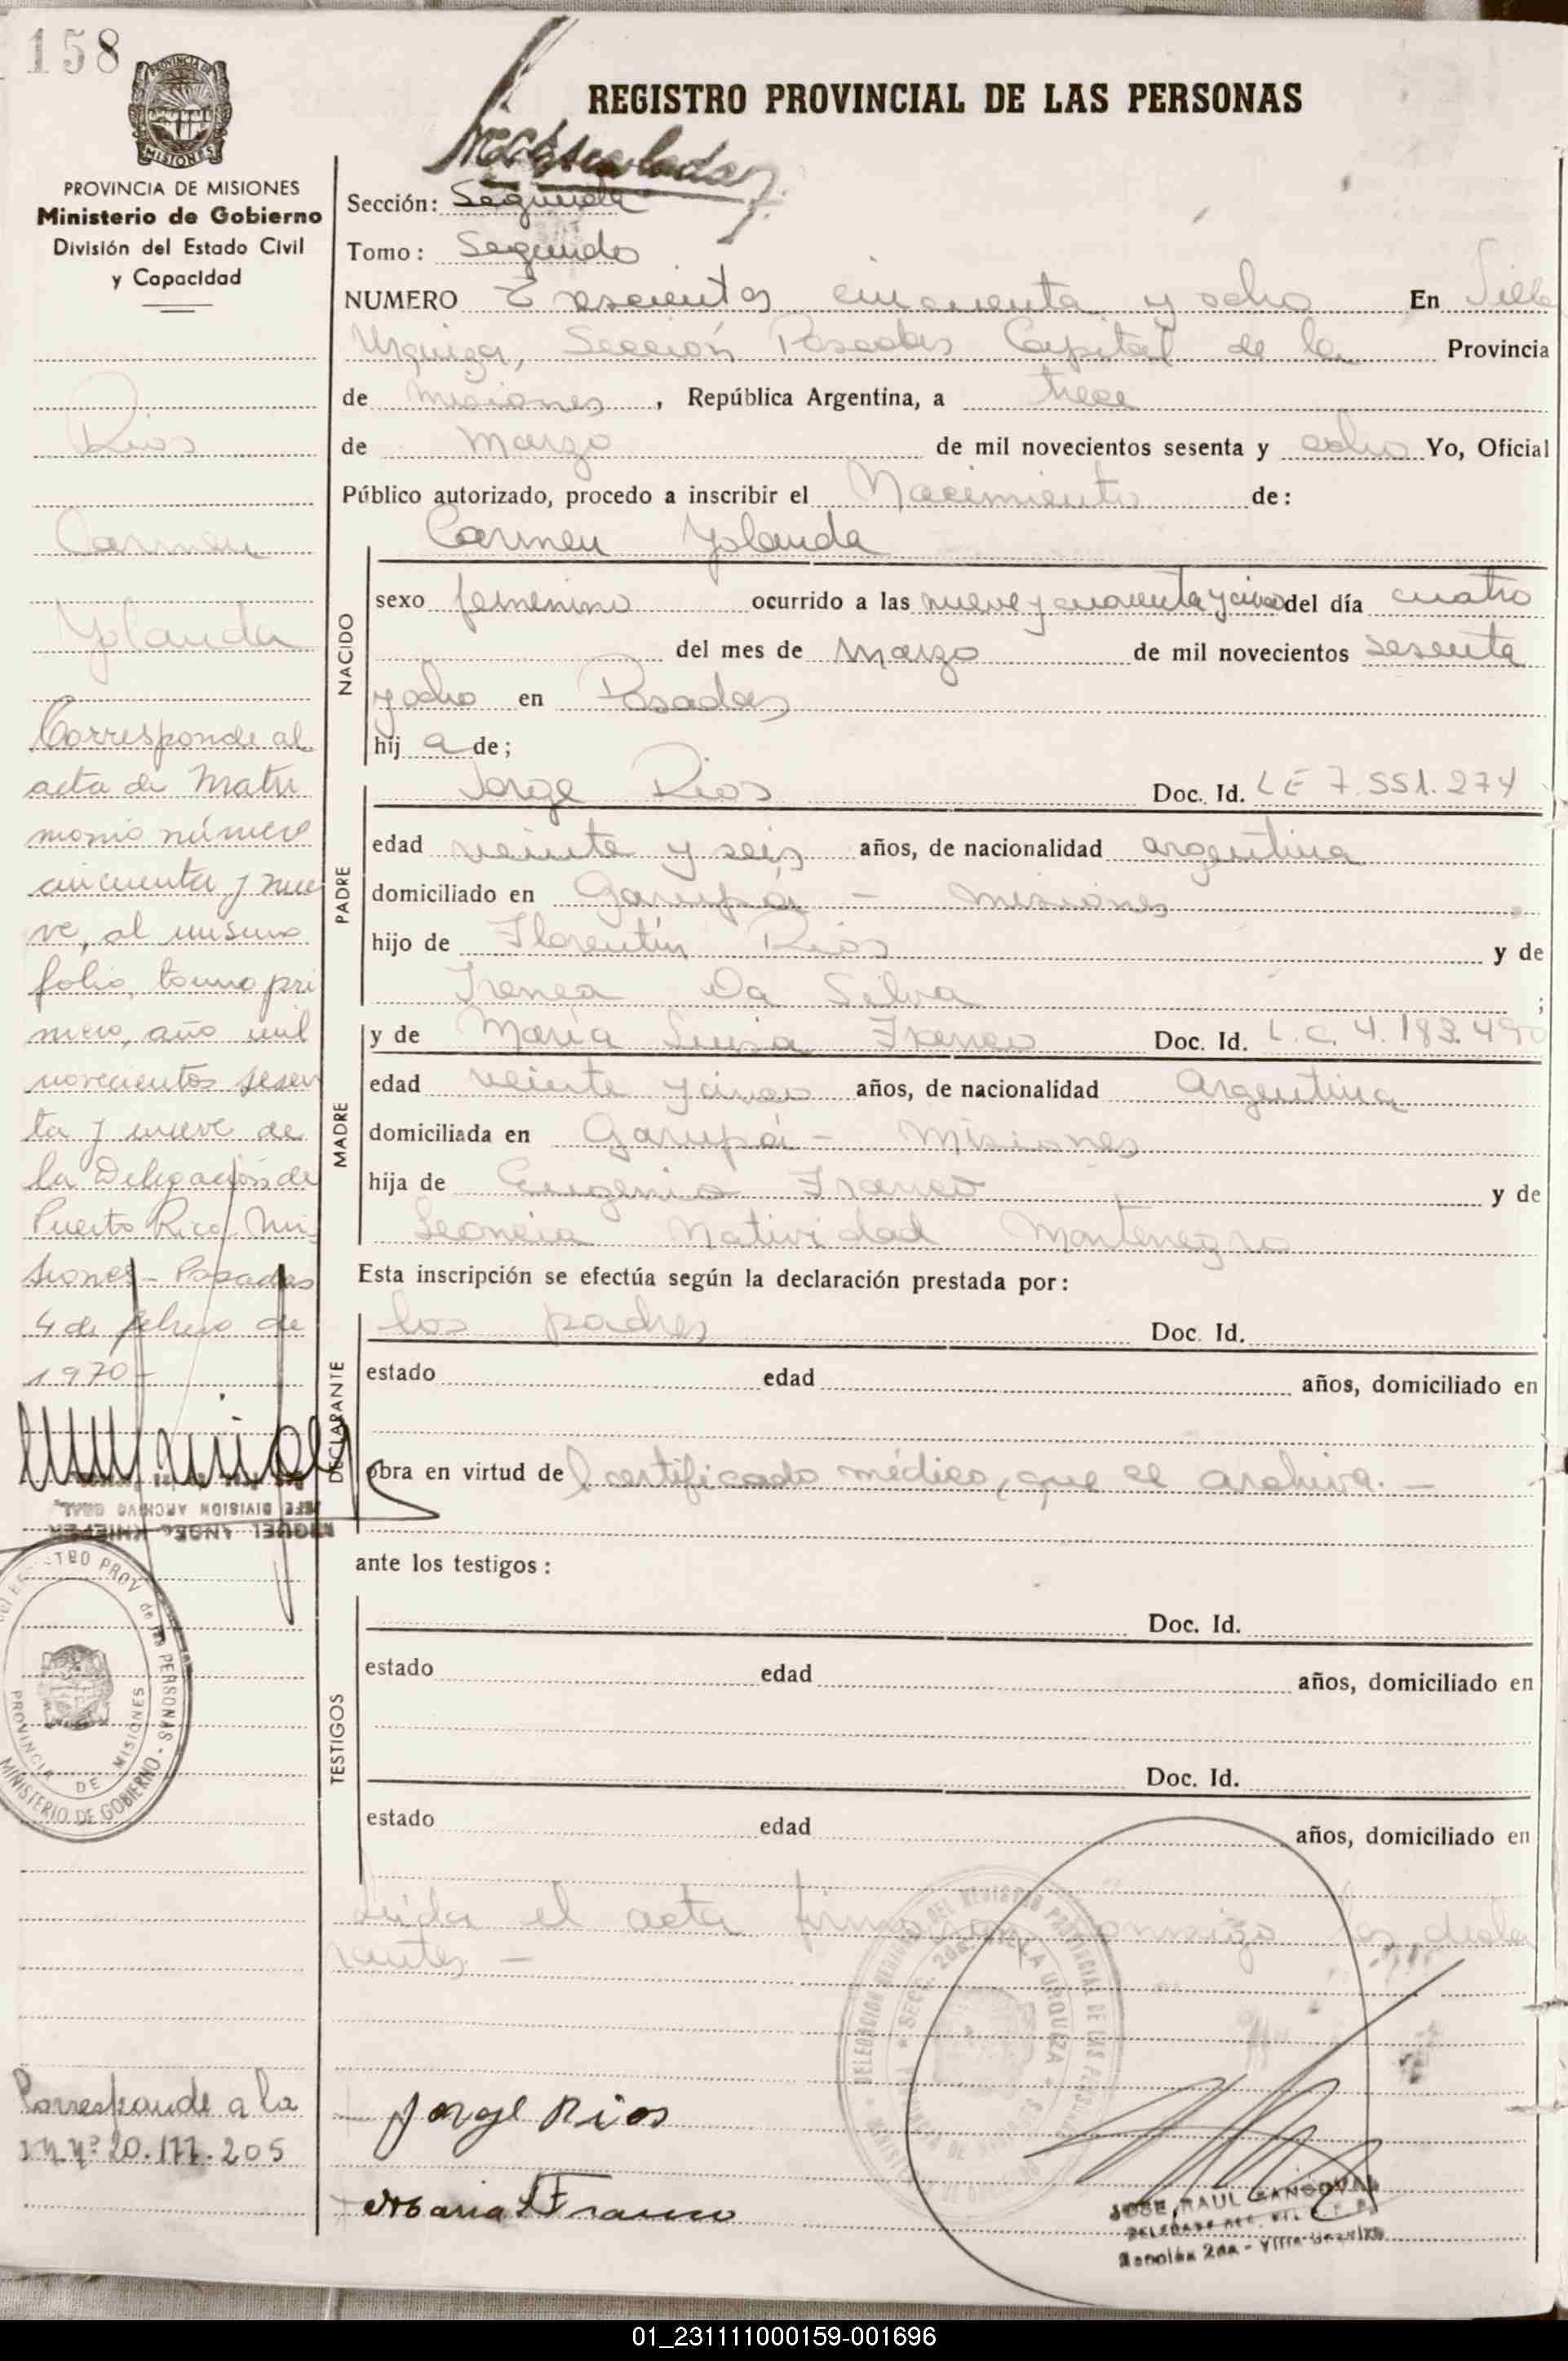 158
PROVINCIA DE MISIONES
Ministerio de Gobierno
División del Estado Civil
y Capacidad
REGISTRO PROVINCIAL DE LAS PERSONAS
Sección: Segunda
Tomo: Segundo
NUMERO Trescientos cincuenta y ocho En Villa
Urquiza, Sección Posadas Capital de la Provincia
de Misiones, República Argentina, a trece
de Marzo de mil novecientos sesenta y ocho Yo, Oficial
Público autorizado, procedo a inscribir el Nacimiento de:
Carmen Yolanda
NACIDO
sexo femenino ocurrido a las nueve y cuarenta y cinco del día cuatro
del mes de Marzo de mil novecientos sesenta
y ocho en Posadas
hij a de;
PADRE
Jorge Rios Doc. Id. LE 7.551.274
edad veinte y seis años, de nacionalidad argentina
domiciliado en Garupá - Misiones
hijo de Florentín Rios y de
Irenea Da Silva ;
MADRE
y de María Luisa Franco Doc. Id. L.C. 4.183.490
edad veinte y cinco años, de nacionalidad Argentina
domiciliada en Garupá - Misiones
hija de Eugenio Franco y de
Leoncia Natividad Montenegro
Esta inscripción se efectúa según la declaración prestada por:
DECLARANTE
los padres Doc. Id.
estado edad años, domiciliado en
obra en virtud de l certificado médico, que se archiva. -
ante los testigos:
TESTIGOS
Doc. Id.
estado edad años, domiciliado en
Doc. Id.
estado edad años, domiciliado en
Leída el acta firmaron conmigo los decla
rantes -
Jorge Rios
Maria L Franco
JOSE RAUL SANDOVAL
Sección 2da - Villa Urquiza
Rios
Carmen
Yolanda
Corresponde al
acta de Matri
monio número
cincuenta y nue
ve, al mismo
folio, tomo pri
mero, año mil
novecientos sesen
ta y nueve de
la Delegación de
Puerto Rico Mi
siones - Posadas
4 de febrero de
1970 -
JEFE DIVISION ARCHIVO GRAL.
MIGUEL ANGEL KNIEPER
REGISTRO PROV. de las PERSONAS
MINISTERIO DE GOBIERNO
PROVINCIA DE MISIONES
Corresponde a la
20.177.205
01_231111000159-001696